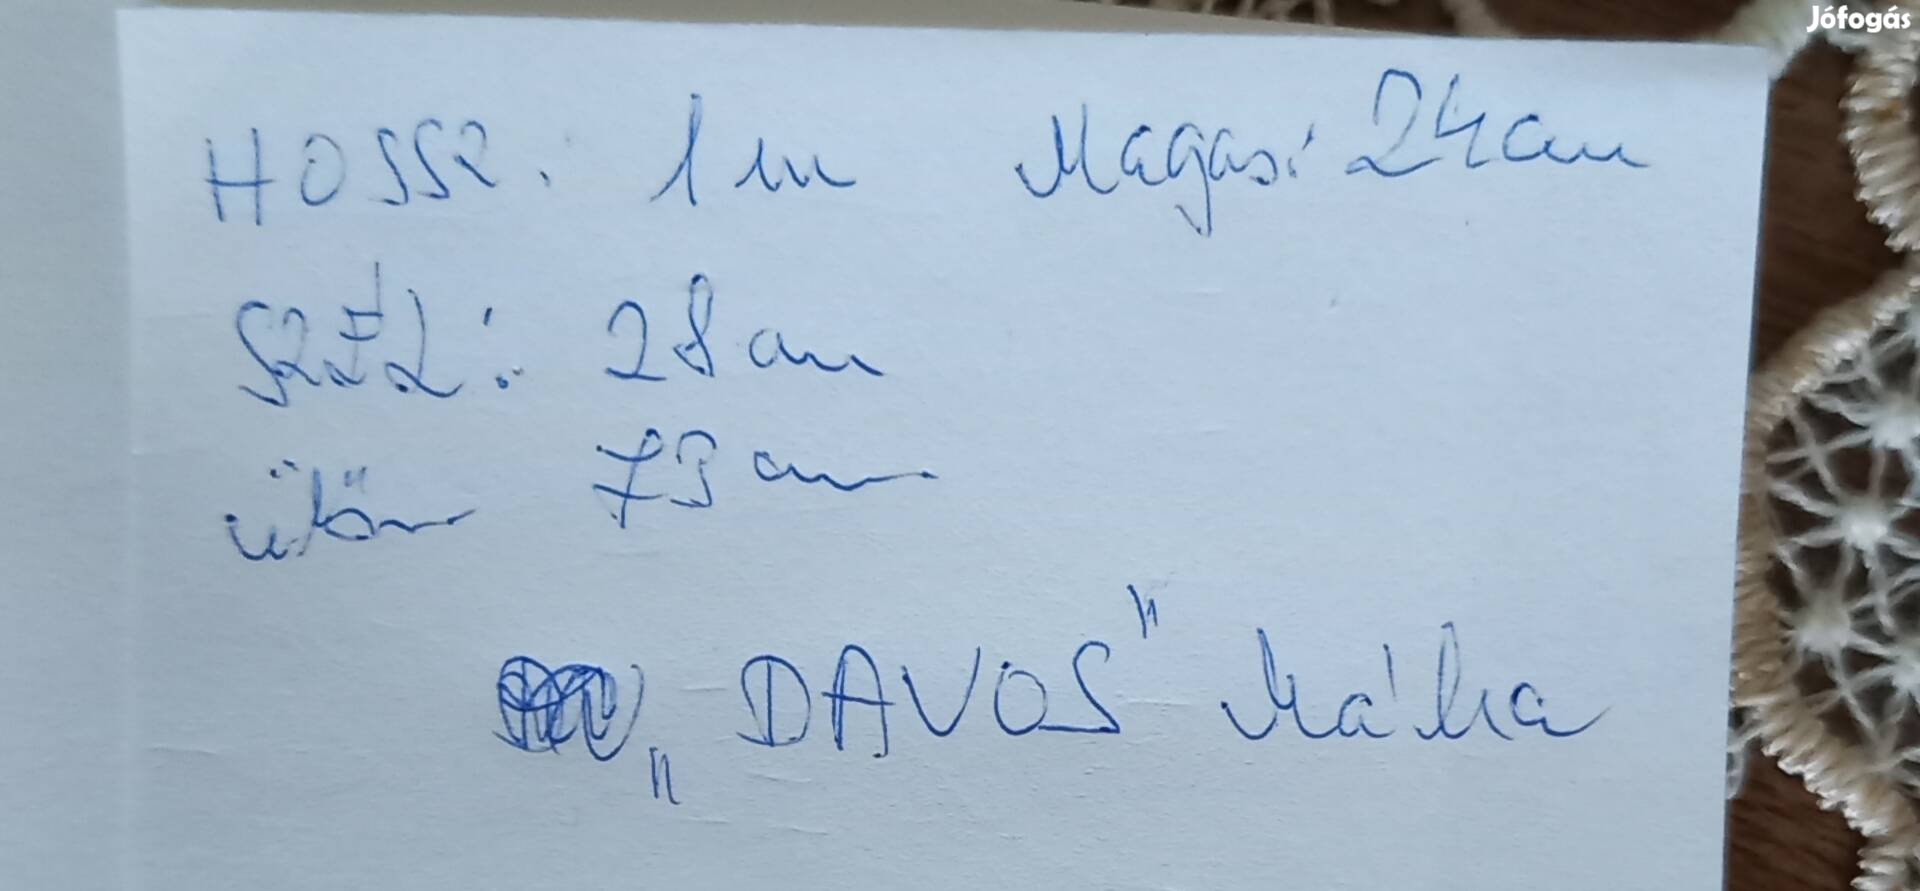 Jófogás
HOSSZ: 1 m Magas: 24 cm
SZÉL: 28 cm
73 cm
„DAVOS” Márka